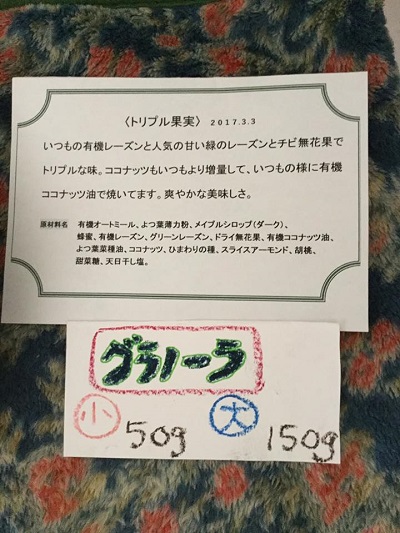 〈トリプル果実〉 2017.3.3
いつもの有機レーズンと人気の甘い緑のレーズンとチビ無花果で
トリプルな味。ココナッツもいつもより増量して、いつもの様に有機
ココナッツ油で焼いてます。爽やかな美味しさ。
原材料名 有機オートミール、よつ葉薄力粉、メイプルシロップ(ダーク)、
蜂蜜、有機レーズン、グリーンレーズン、ドライ無花果、有機ココナッツ油、
よつ葉菜種油、ココナッツ、ひまわりの種、スライスアーモンド、胡桃、
甜菜糖、天日干し塩。
グラノーラ
小 50g 大 150g